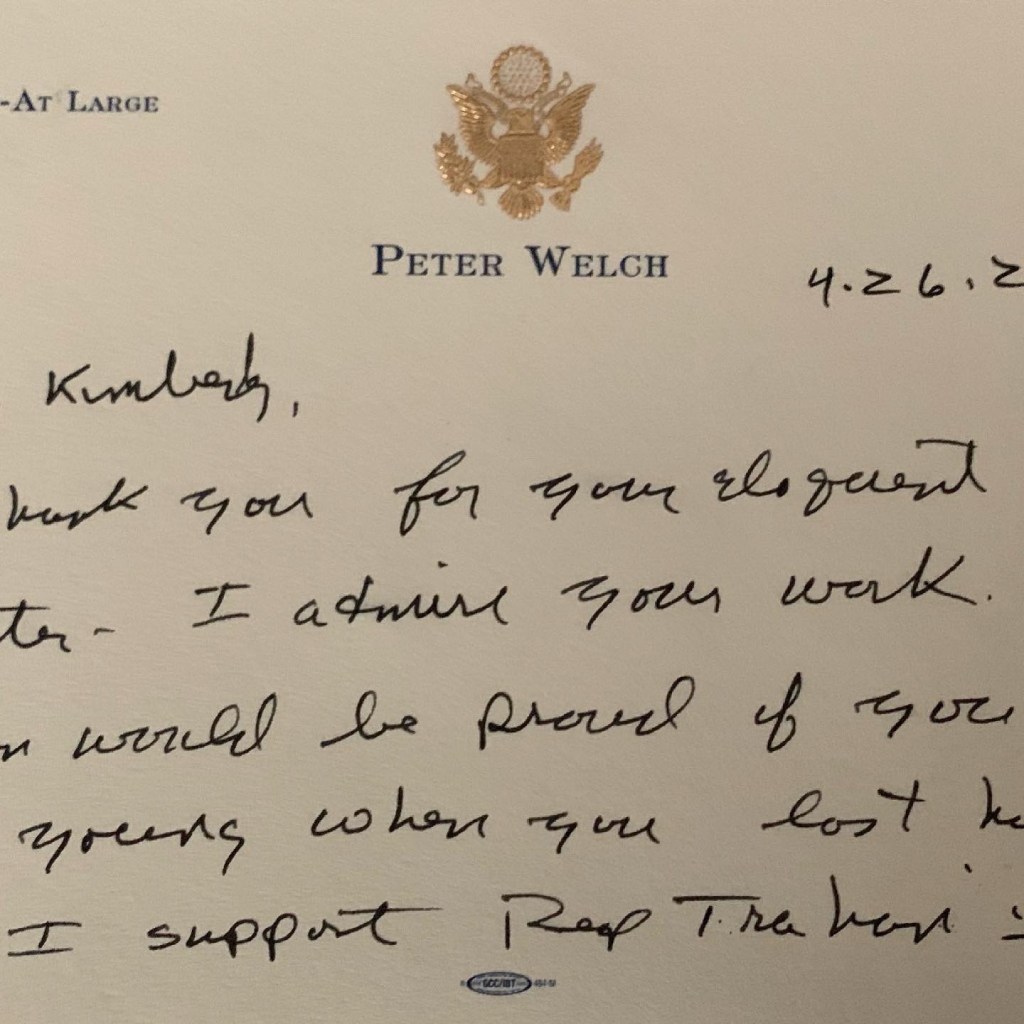 -AT LARGE
PETER WELCH
4.26.2
Kimberly,
hank you for your eloquent
ter - I admire your work.
would be proud of you
young when you lost h
I support Rep Trahan's
GCC/IBT